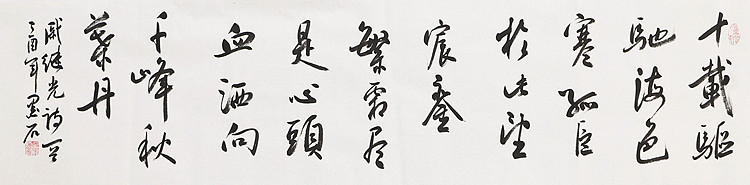 十載驅
馳海色
寒孤臣
於此望
宸銮
繁霜尽
是心頭
血洒向
千峰秋
葉丹
戚继光詩一首
丁酉年墨石